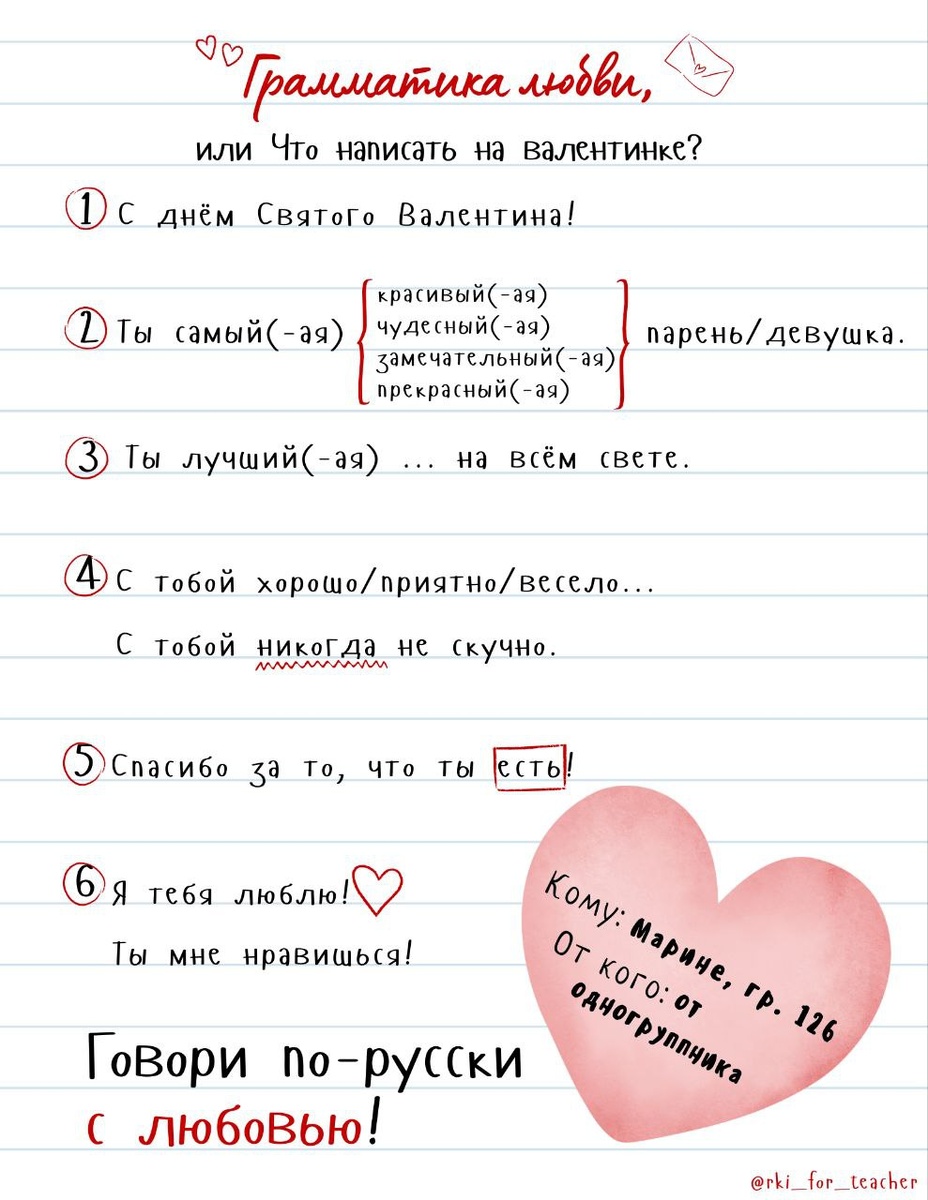 Грамматика любви,
или Что написать на валентинке?
1 С днём Святого Валентина!
2 Ты самый(-ая)
красивый(-ая)
чудесный(-ая)
замечательный(-ая)
прекрасный(-ая)
парень/девушка.
3 Ты лучший(-ая) ... на всём свете.
4 С тобой хорошо/приятно/весело...
С тобой никогда не скучно.
5 Спасибо за то, что ты есть!
6 Я тебя люблю!
Ты мне нравишься!
Кому: Марине, гр. 126
От кого: от
одногруппника
Говори по-русски
с любовью!
@rki_for_teacher